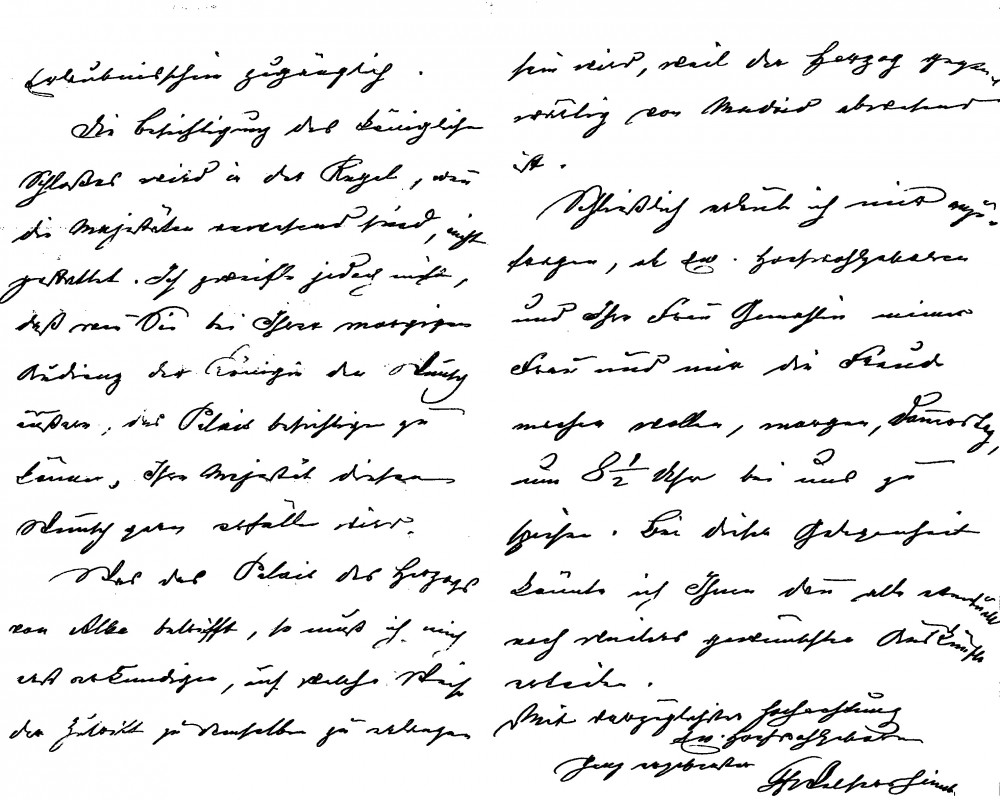 Erlaubnisschein zugänglich.
Die Besichtigung des königlichen
Schloßes wird in der Regel, wenn
die Majestäten anwesend sind, nicht
gestattet. Ich zweifle jedoch nicht,
daß wenn Sie bei Ihrer morgigen
Audienz der Königin den Wunsch
äußern, das Palais besichtigen zu
können, Ihre Majestät diesen
Wunsch gern erfüllen wird.
Was das Palais des Herzogs
von Alba betrifft, so muß ich mich
erst erkundigen, auf welche Weise
der Zutritt zu demselben zu erlangen
sein wird, weil der Herzog gegen-
wärtig von Madrid abwesend
ist.
Schließlich erlaube ich mir anzu-
fragen, ob Ew. Hochwohlgeboren
und Ihre Frau Gemahlin meiner
Frau und mir die Freude
machen wollen, morgen, Samstag,
um 8 1/2 Uhr bei uns zu
speisen. Bei dieser Gelegenheit
könnte ich Ihnen dann alle eventuell
noch weiters gewünschten Auskünfte
erteilen.
Mit vorzüglichster Hochachtung
Ew. Hochwohlgeboren
ganz ergebenster